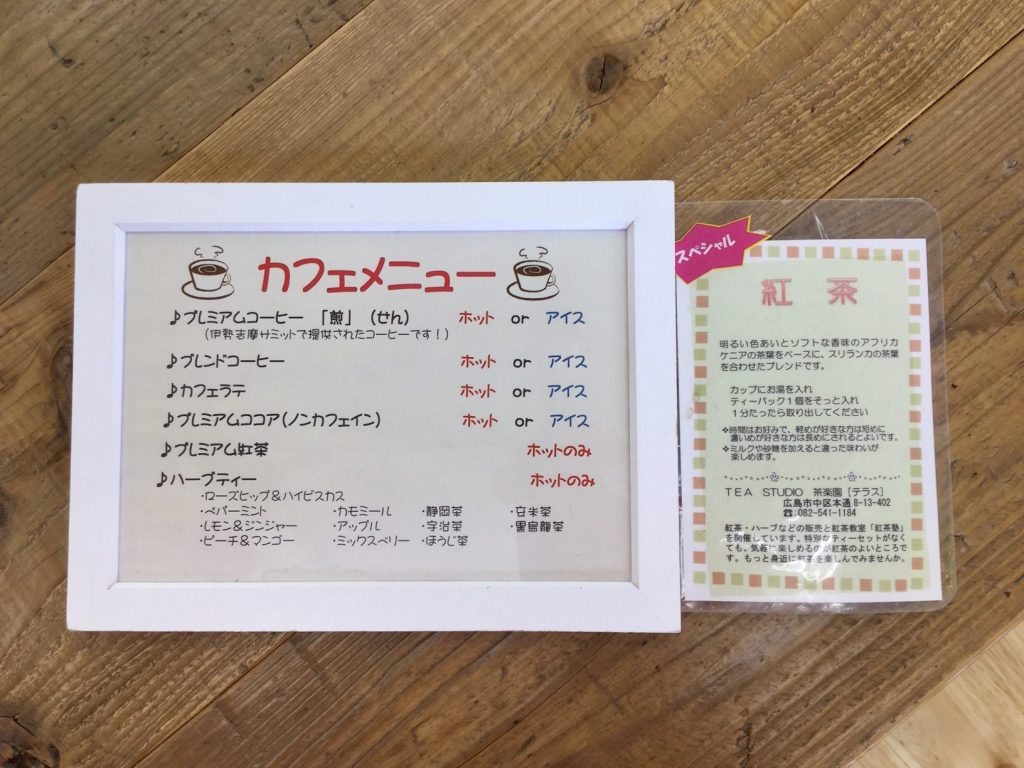 カフェメニュー
♪プレミアムコーヒー 「煎」 (せん) ホット or アイス
(伊勢志摩サミットで提供されたコーヒーです!)
♪ブレンドコーヒー ホット or アイス
♪カフェラテ ホット or アイス
♪プレミアムココア(ノンカフェイン) ホット or アイス
♪プレミアム紅茶 ホットのみ
♪ハーブティー ホットのみ
・ローズヒップ&ハイビスカス
・ペパーミント ・カモミール ・静岡茶 ・玄米茶
・レモン&ジンジャー ・アップル ・宇治茶 ・黒烏龍茶
・ピーチ&マンゴー ・ミックスベリー ・ほうじ茶
スペシャル
紅 茶
明るい色あいとソフトな香味のアフリカ
ケニアの茶葉をベースに、スリランカの茶葉
を合わせたブレンドです。
カップにお湯を入れ
ティーバック1個をそっと入れ
1分たったら取り出してください
❖時間はお好みで、軽めが好きな方は短めに
濃いめが好きな方は長めにされるとよいです。
❖ミルクや砂糖を加えると違った味わいが
楽しめます。
TEA STUDIO 茶楽園 [テラス]
広島市中区本通 8-13-402
☎:082-541-1184
紅茶・ハーブなどの販売と紅茶教室「紅茶塾」
を開催しています。特別なティーセットがなく
ても、気軽に楽しめるのが紅茶のよいところで
す。もっと身近に紅茶を楽しんでみませんか。